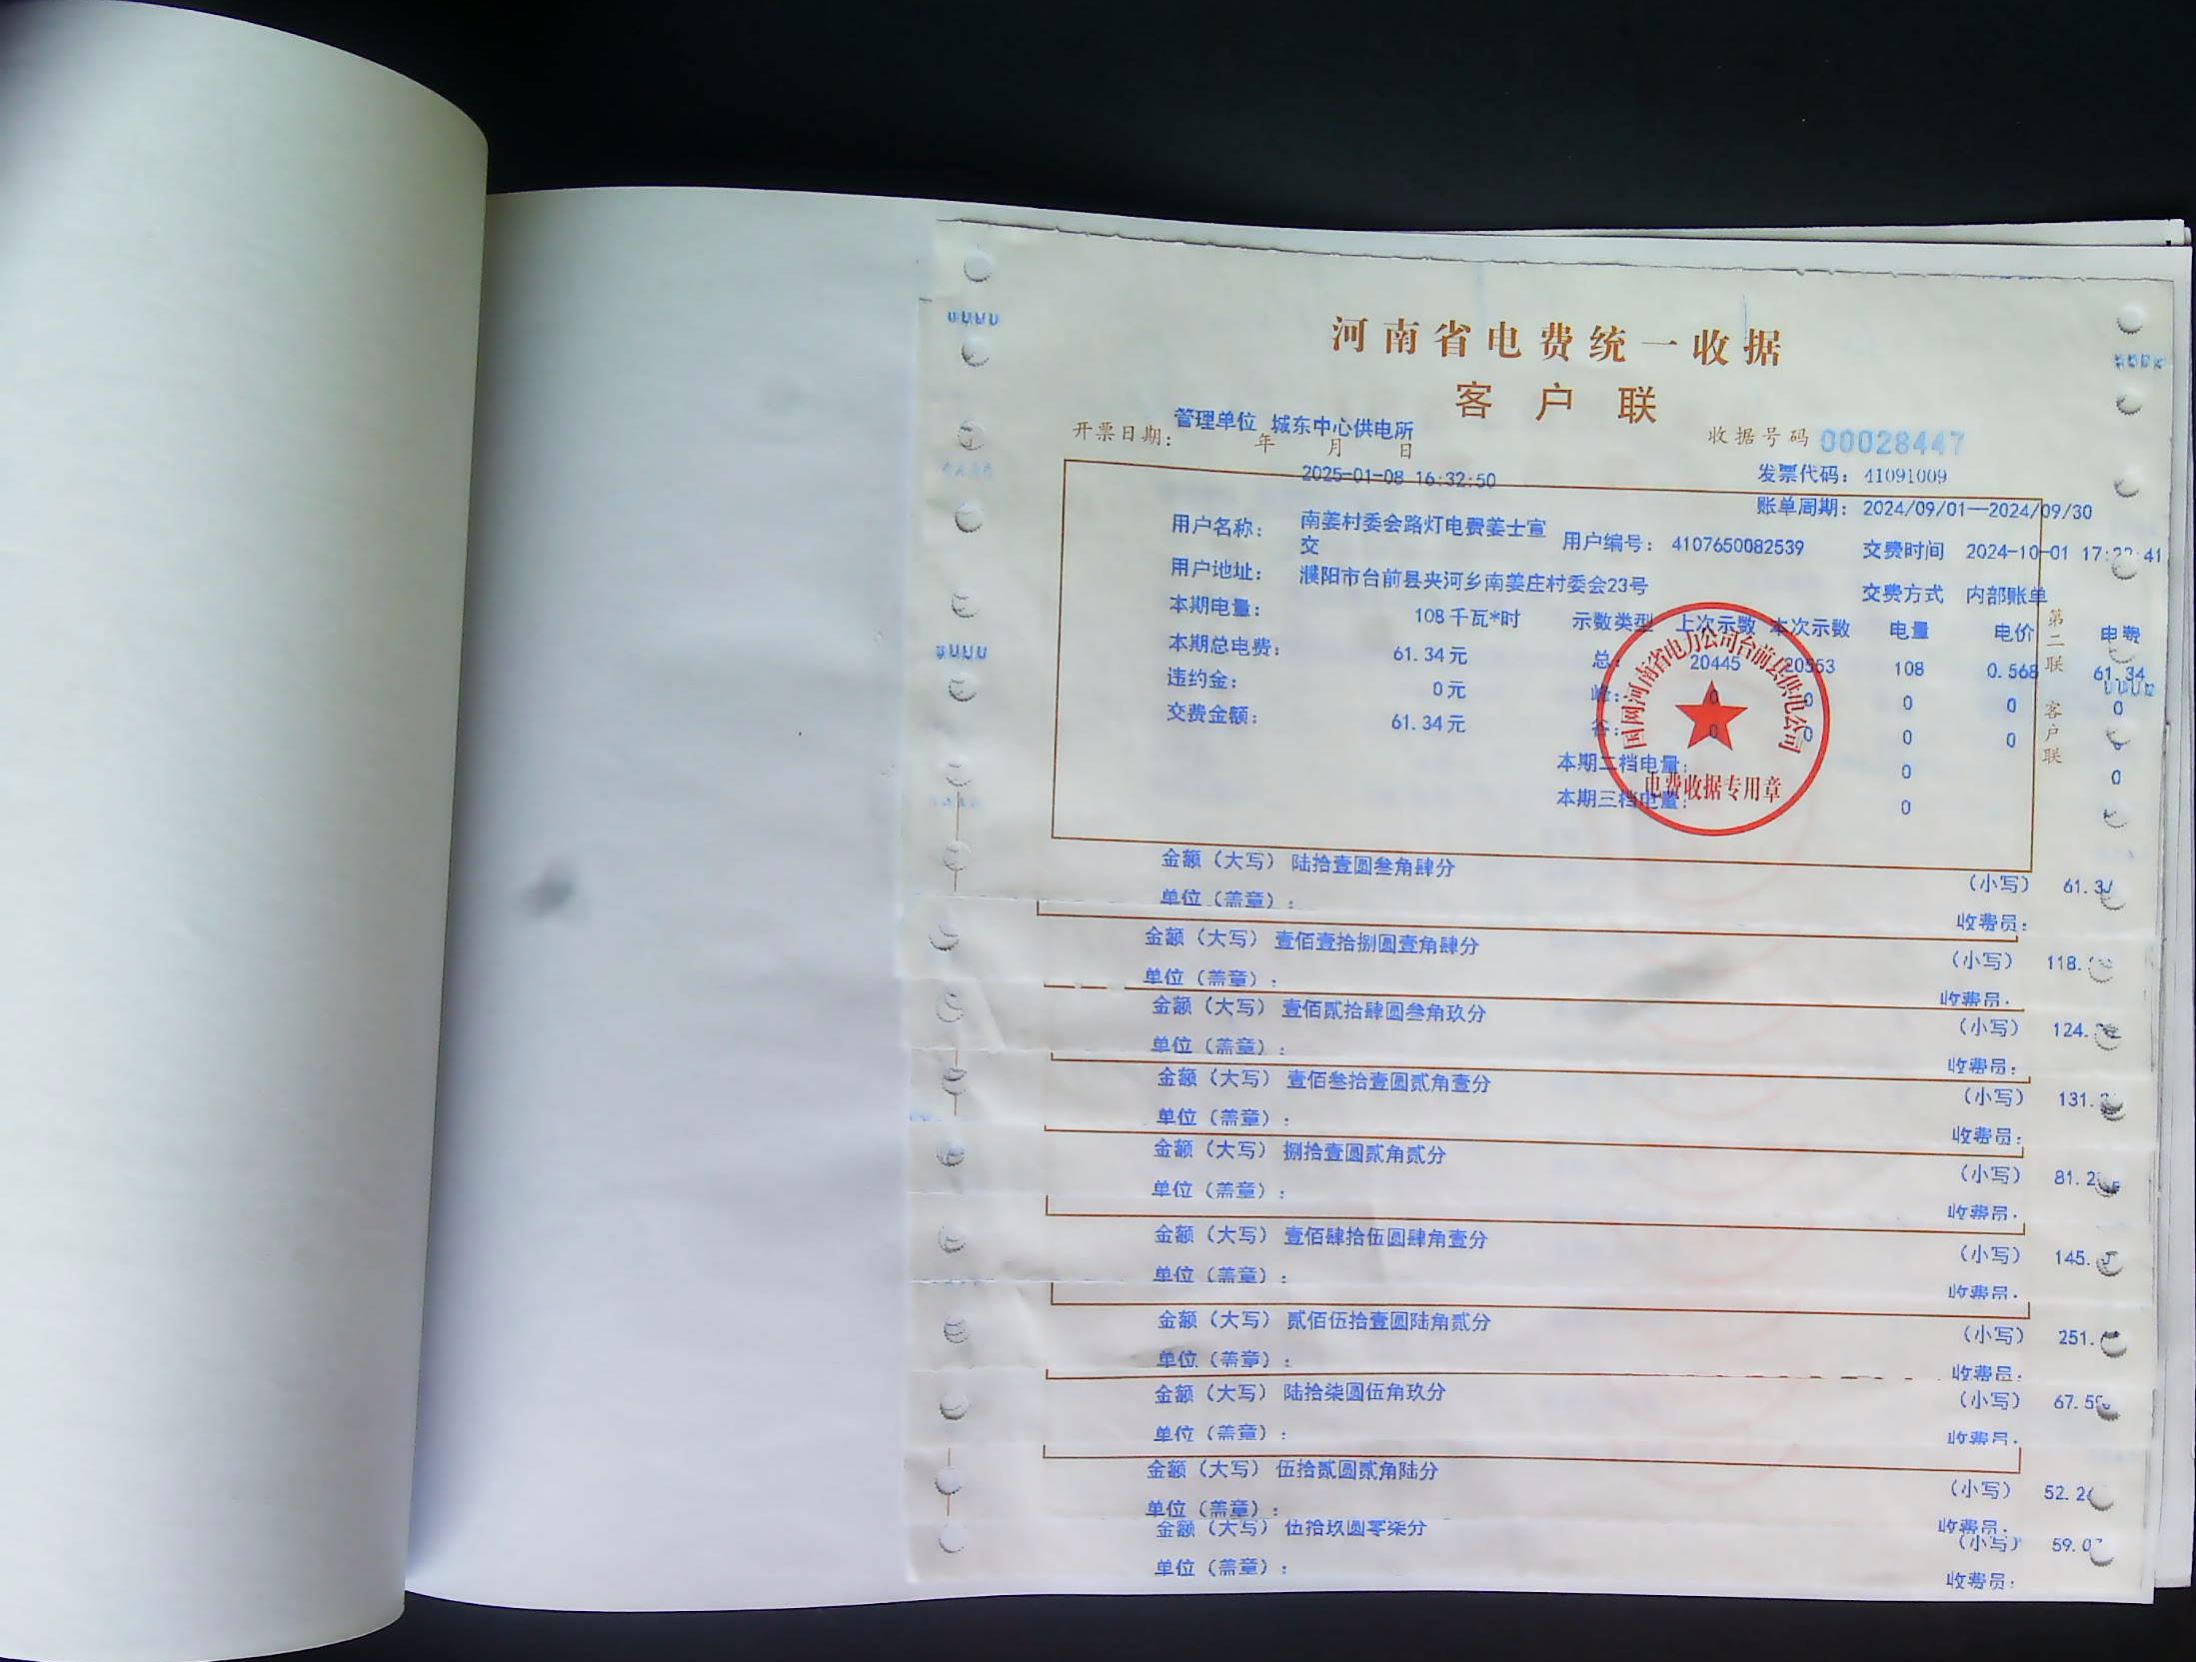 河南省电费统一收据
客户联
管理单位 城东中心供电所
开票日期： 年 月 日
收据号码 00028447
2025-01-08 16:32:50
发票代码： 41091009
账单周期： 2024/09/01—2024/09/30
用户名称： 南姜村委会路灯电费姜士宣交 用户编号： 4107650082539 交费时间 2024-10-01 17: :41
用户地址： 濮阳市台前县夹河乡南姜庄村委会23号 交费方式 内部账单
本期电量： 108千瓦*时 示数类型 上次示数 本次示数 电量 电价 电费
本期总电费： 61.34元 总： 20445 20553 108 0.568 61.34
违约金： 0元 峰： 0 0 0 0 0
交费金额： 61.34元 谷： 0 0 0 0
本期二档电量： 0 0
本期三档电量： 0
国网河南省电力公司台前县供电公司
电费收据专用章
第二联 客户联
金额（大写） 陆拾壹圆叁角肆分 （小写） 61.34
单位（盖章）： 收费员：
金额（大写） 壹佰壹拾捌圆壹角肆分 （小写） 118.
单位（盖章）： 收费员：
金额（大写） 壹佰贰拾肆圆叁角玖分 （小写） 124.
单位（盖章）： 收费员：
金额（大写） 壹佰叁拾壹圆贰角壹分 （小写） 131.
单位（盖章）： 收费员：
金额（大写） 捌拾壹圆贰角贰分 （小写） 81.2
单位（盖章）： 收费员：
金额（大写） 壹佰肆拾伍圆肆角壹分 （小写） 145.
单位（盖章）： 收费员：
金额（大写） 贰佰伍拾壹圆陆角贰分 （小写） 251.
单位（盖章）： 收费员：
金额（大写） 陆拾柒圆伍角玖分 （小写） 67.59
单位（盖章）： 收费员：
金额（大写） 伍拾贰圆贰角陆分 （小写） 52.26
单位（盖章）： 收费员：
金额（大写） 伍拾玖圆零柒分 （小写） 59.07
单位（盖章）： 收费员：